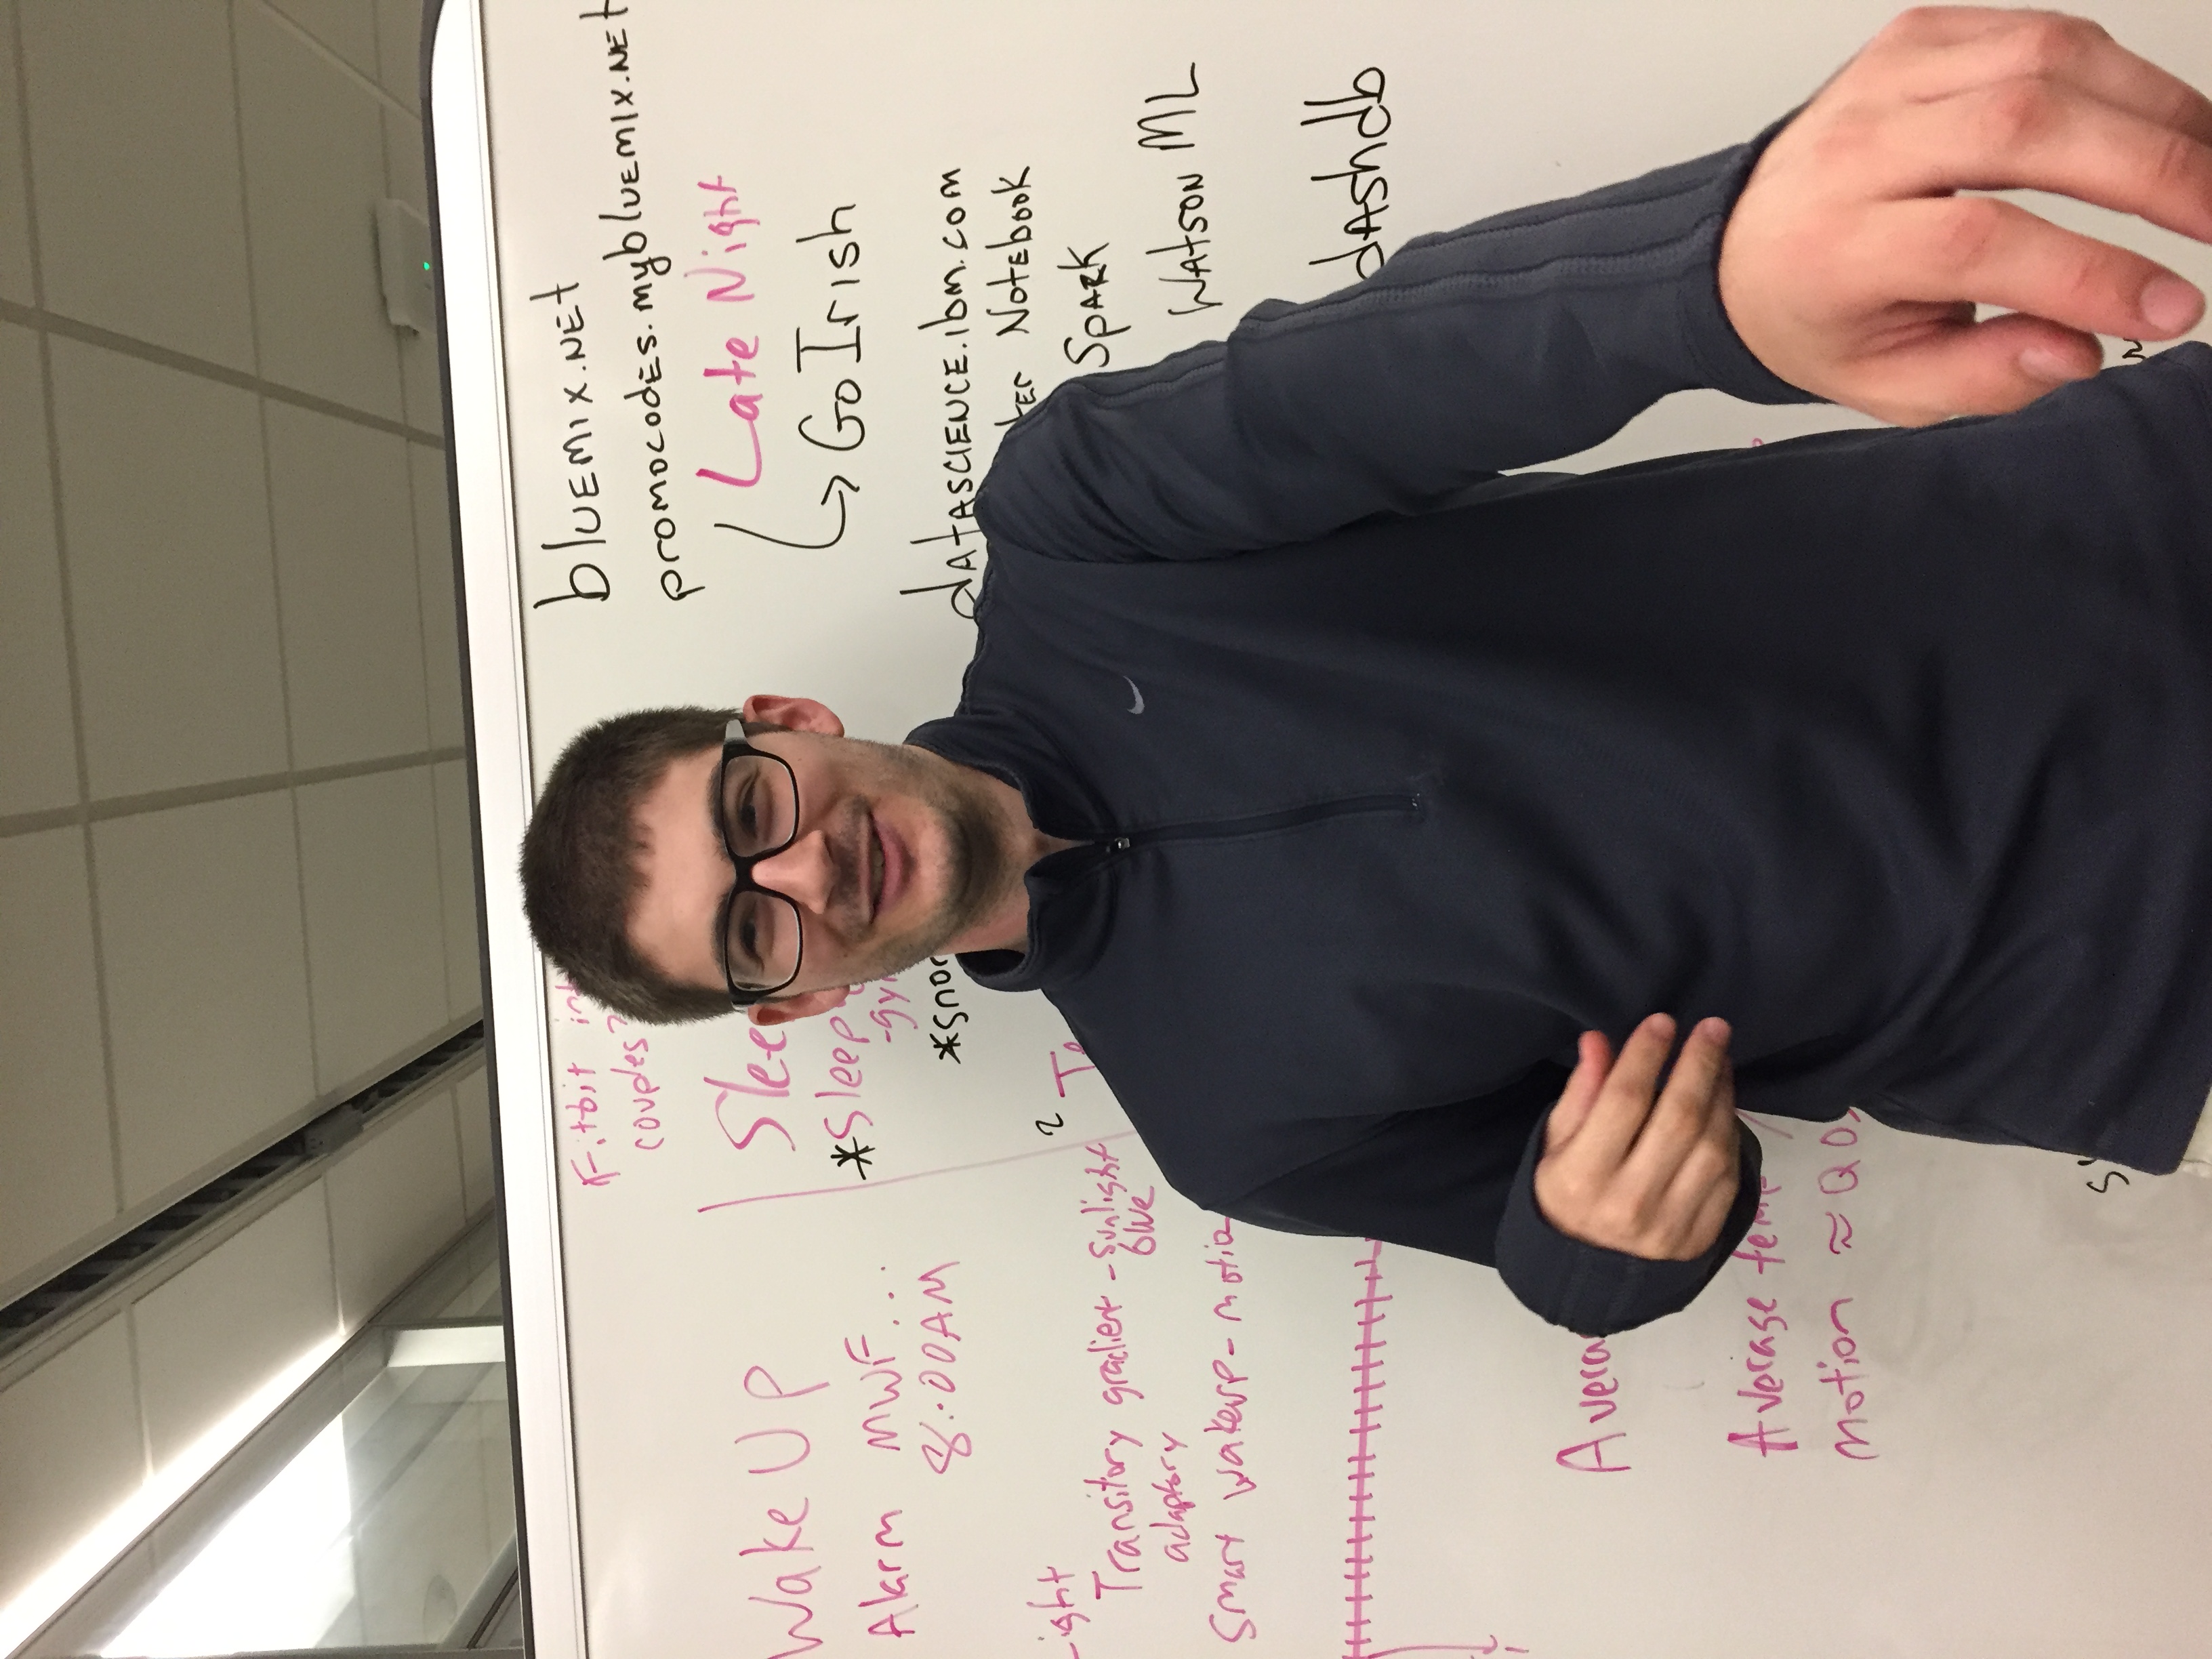 Fitbit
couples?
Wake Up
Alarm MWF...
8:00AM
Light
Transitory gradient - sunlight
blue
adaptory
Smart wakeup - motio
*Sleep
*snor
2
Average temp
motion ≈ Q O
bluemix.net
promocodes.mybluemix.net
Late Night
Go Irish
datascience.ibm.com
Notebook
Spark
Watson ML
dashdb